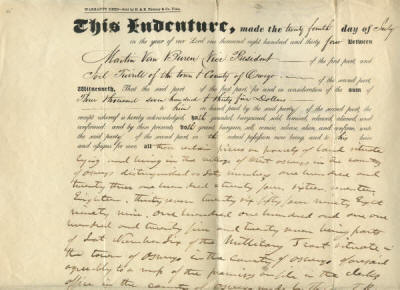 WARRANTY DEED—Sold by
This Indenture, made the twenty fourth day of July
in the year of our Lord one thousand eight hundred and thirty four Between
Martin Van Buren Vice President of the first part, and
Joel Turrill of the town & County of Oswego
of the second part,
Witnesseth, That the said part of the first part, for and in consideration of the sum of
Three thousand seven hundred & thirty five Dollars
to him in hand paid by the part of the second part, the
receipt whereof is hereby acknowledged, hath granted, bargained, sold, remised, released, aliened, and
confirmed: and by these presents doth grant, bargain, sell, remise, release, alien, and confirm, unto
the said party of the second part, in actual possession now being, and to his heirs
and assigns for ever, all those certain pieces or parcels of land situate
lying and being in the village of West Oswego in the county
of Oswego distinguished as lot numbers one hundred and
twenty three one hundred & twenty four, sixteen, seventeen,
Eighteen, thirty seven, fifty four ninety Eight
ninety nine, One hundred, one hundred and one, one
hundred and twenty five and twenty seven being parts
of Lot Number Six of the Military Tract situate in
the town of Oswego in the county of Oswego aforesaid
agreeably to a map of the premises on file in the clerks
office in the county of Oswego made by